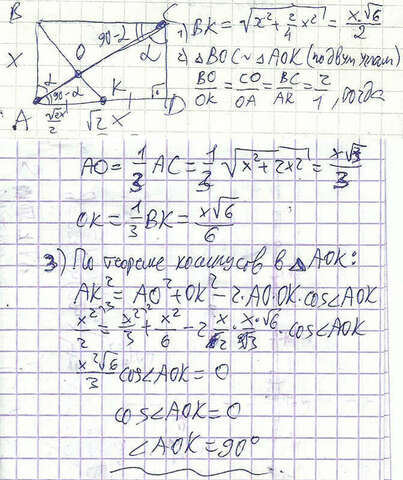 B C
90-α
α
X O
α
90-α K
A √2x/2 √2 X D
1) BK = √(x² + 2/4 x²) = x·√6/2
2) △BOC ~ △AOK (по двум углам)
BO/OK = CO/OA = BC/AK = 2/1, тогда
AO = 1/3 AC = 1/3 √(x² + 2x²) = x√3/3
OK = 1/3 BK = x√6/6
3) По теореме косинусов в △AOK:
AK² = AO² + OK² - 2·AO·OK·cos∠AOK
x²/2 = x²/3 + x²/6 - 2 · x·√6 · cos∠AOK
x²√6/3 cos∠AOK = 0
cos∠AOK = 0
∠AOK = 90°